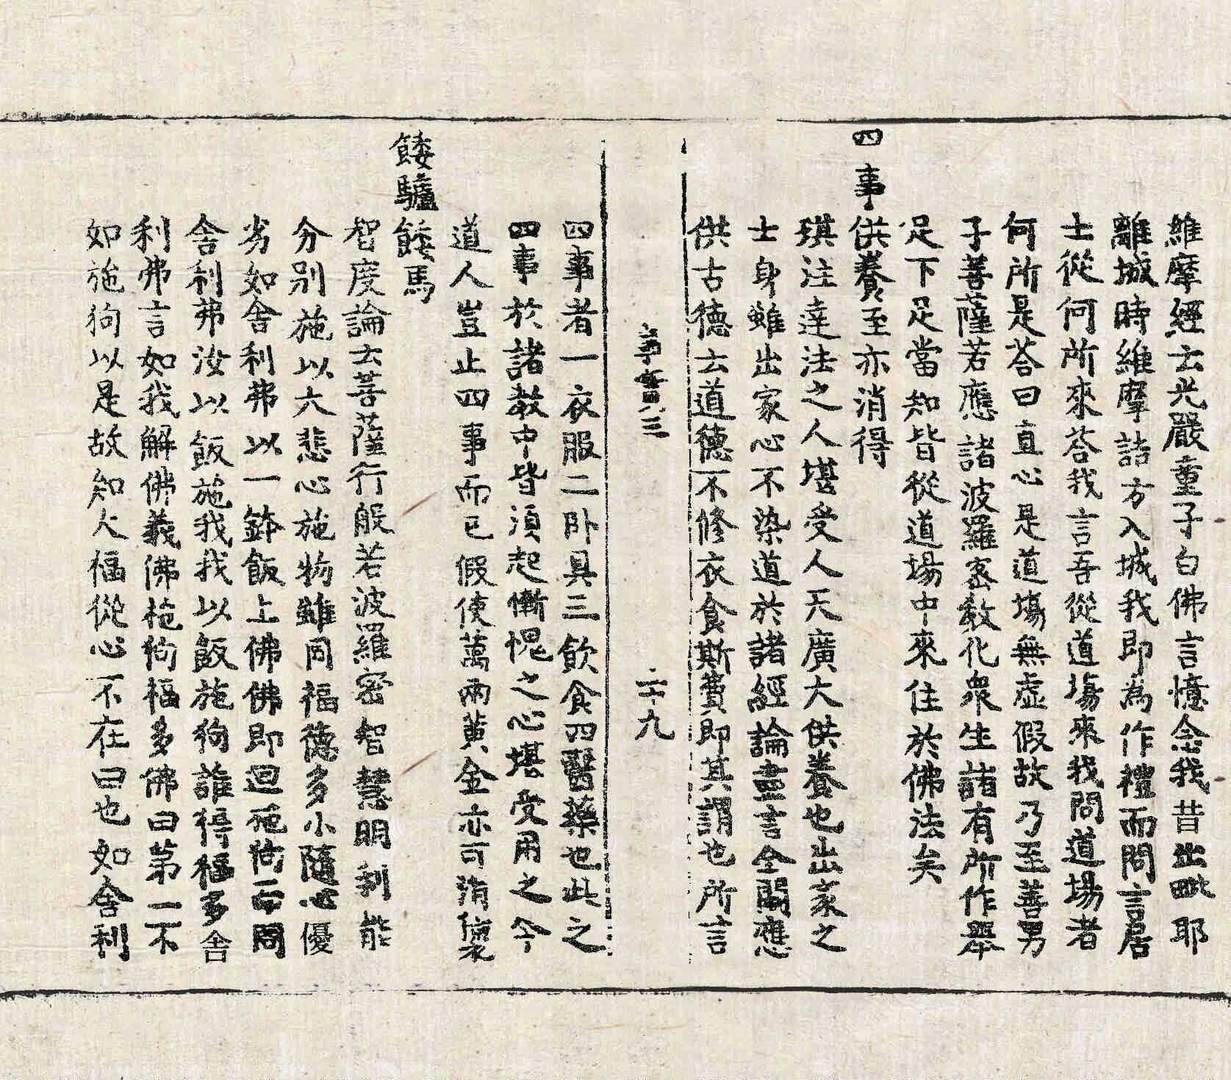 維摩經云光嚴童子白佛言憶念我昔出毗耶
離城時維摩詰方入城我即為作禮而問言居
士從何所來荅我言吾從道場來我問道場者
何所是荅曰直心是道場無虛假故乃至善男
子善薩若應諸波羅蜜教化衆生諸有所作舉
足下足當知皆從道場中來住於佛法矣
四事供養至亦消得
琪注達法之人堪受人天廣大供養也出家之
士身雖出家心不染道於諸經論盡言全闕應
供古德云道德不修衣食斯費即其謂也所言
二十九
四事者一衣服二卧具三飲食四醫藥也此之
四事於諸教中皆須起慚愧之心堪受用之今
道人豈止四事而已假使萬兩黃金亦可消
餧驢餧馬
智度論云菩薩行般若波羅密智慧明利能
分別施以大悲心施物雖同福德多小隨心優
劣如舍利弗以一鉢飯上佛佛即迴施狗而問
舍利弗汝以飯施我我以飯施狗誰得福多舍
利弗言如我解佛義佛施狗福多佛曰第一不
如施狗以是故知大福從心不在曰也如舍利